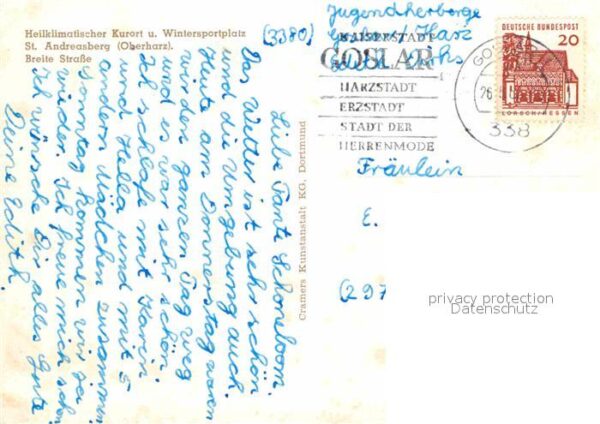 Heilklimatischer Kurort u. Wintersportplatz
St. Andreasberg (Oberharz).
Breite Straße
(3380)
Jugendherberge
Goslar Harz
KAISERSTADT
GOSLAR
HARZSTADT
ERZSTADT
STADT DER
HERRENMODE
GOSLAR
26
338
DEUTSCHE BUNDESPOST
20
LORSCH/HESSEN
Fräulein
E.
(297
privacy protection
Datenschutz
Cramers Kunstanstalt KG, Dortmund
Liebe Tante Schoneboom.
Das Wetter ist sehr schön
und die Umgebung auch.
Heute am Donnerstag waren
wir den ganzen Tag weg
und es war sehr schön.
Ich schlafe mit Karin
und Hella und mit 5
andern Mädchen zusammen.
Sonntag kommen wir ja
wieder. Ich freue mich schon.
Ich wünsche Dir alles Gute
Deine Edith.